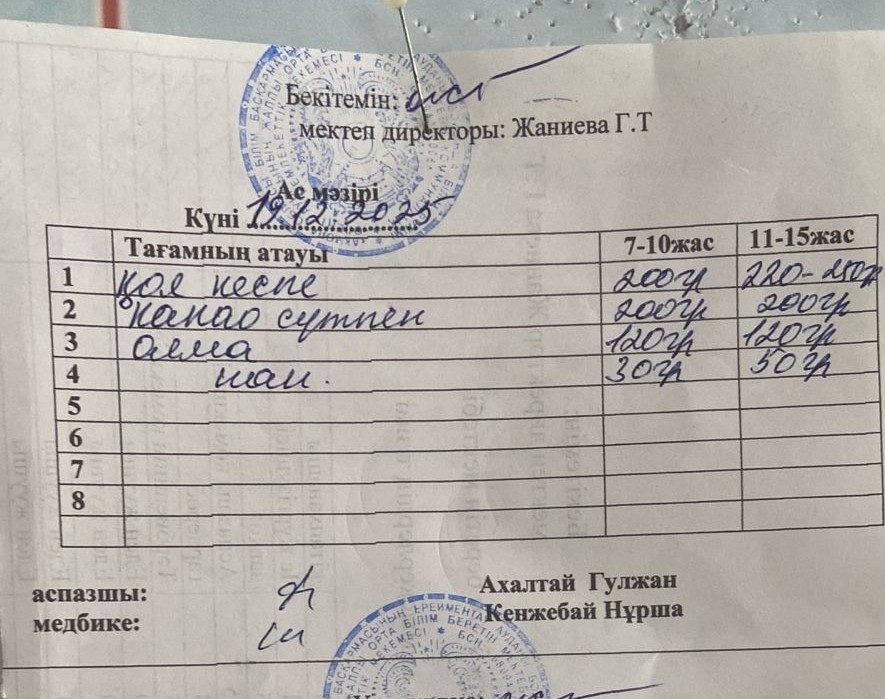 Бекітемін:
мектеп директоры: Жаниева Г.Т
Ас мәзірі
Күні 19.12.2025
Тағамның атауы 7-10жас 11-15жас
1 қол кеспе 200гр 220-250гр
2 какао сүтпен 200гр 200гр
3 алма 120гр 120гр
4 нан. 30гр 50гр
5
6
7
8
аспазшы: Ахалтай Гулжан
медбике: Кенжебай Нұрша